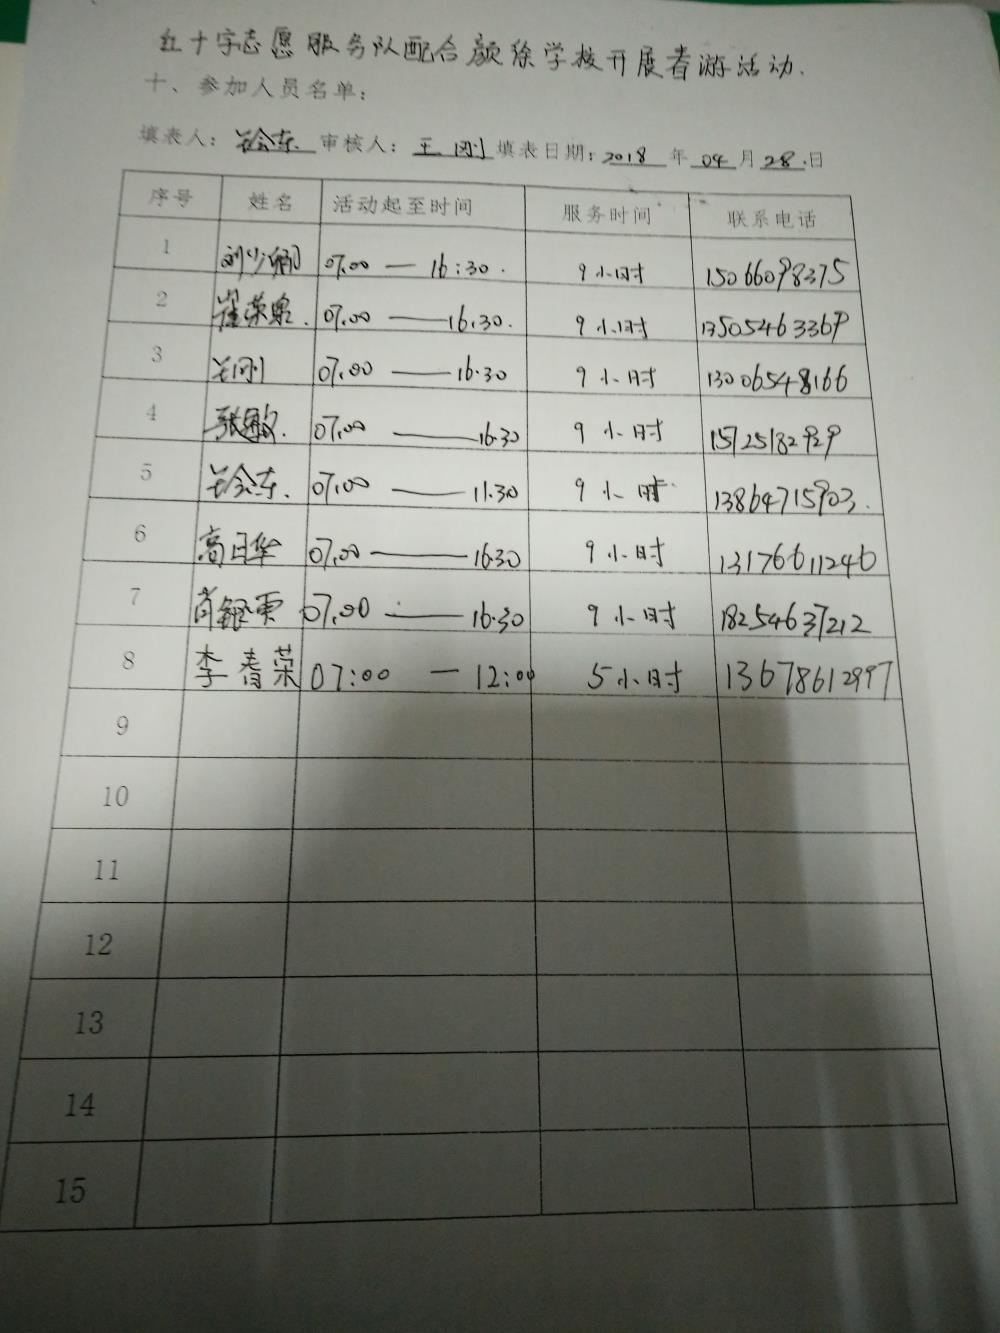 红十字志愿服务队配合颜徐学校开展春游活动.
十、参加人员名单：
填表人： 审核人：王刚 填表日期：2018 年 04 月 28 日
序号 姓名 活动起至时间 服务时间 联系电话
1 07.00 — 16:30. 9小时 15066098375
2 崔荣泉. 07.00 — 16.30. 9小时 13505463369
3 王刚 07.00 — 16.30 9小时 13006548166
4 张敏. 07.00 — 16.30 9小时 15725182929
5 07.00 — 11.30 9小时 13864715903.
6 高日华 07.00 — 16.30 9小时 13176611246
7 07.00 — 16.30 9小时 18254637212
8 李春荣 07:00 — 12:00 5小时 13678612997
9
10
11
12
13
14
15